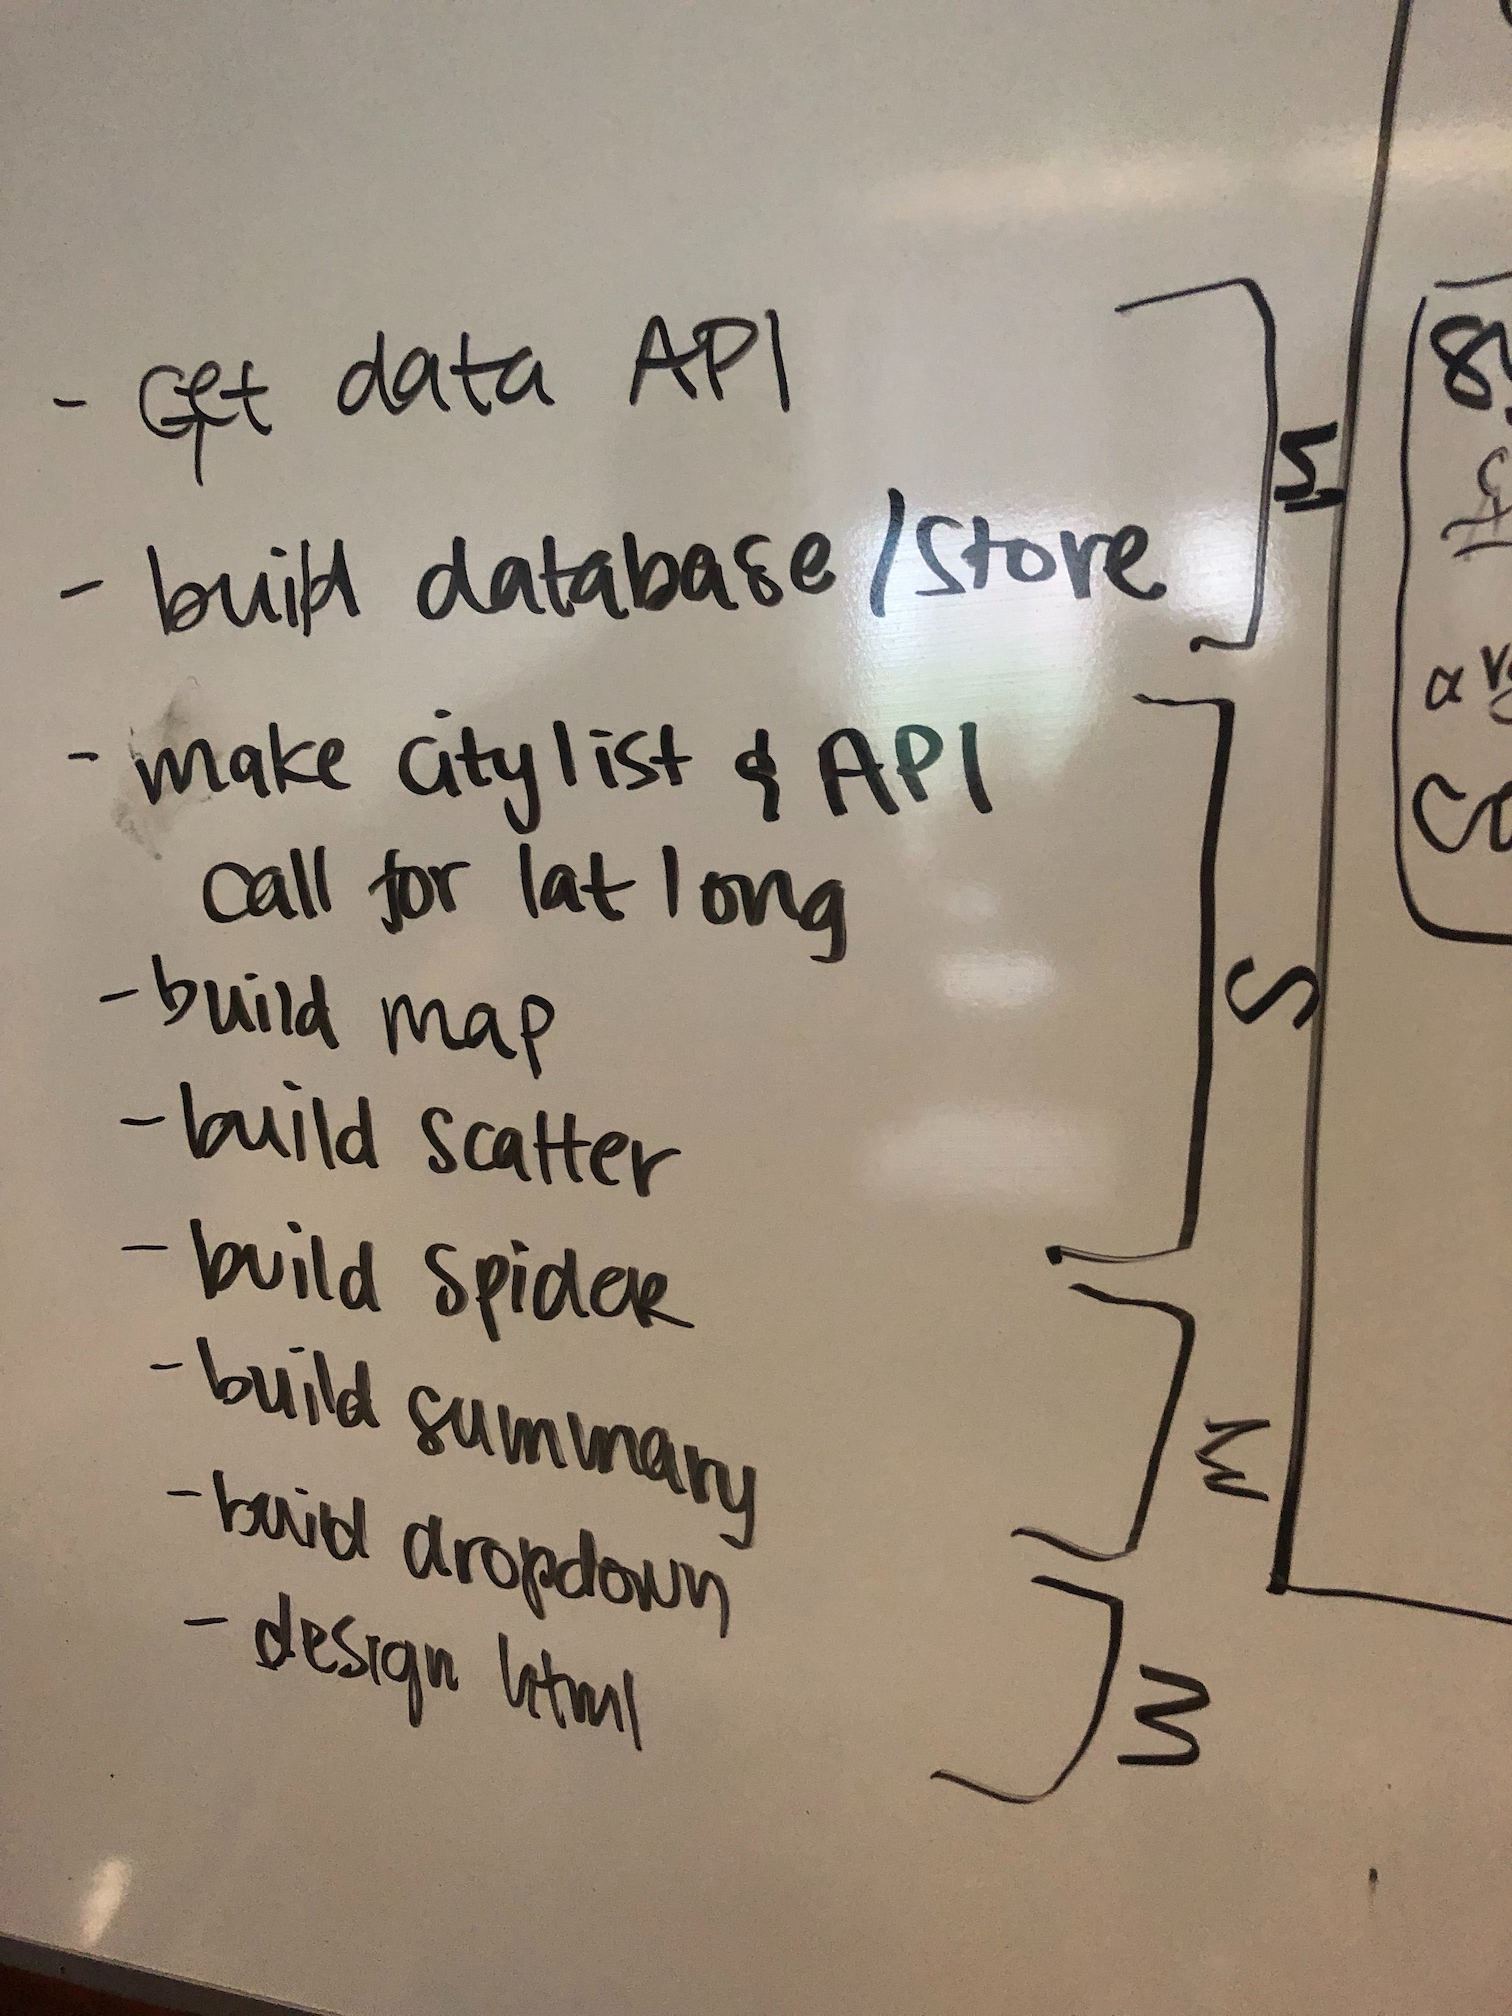 - Get data API
- build database/store
- make city list & API
call for lat long
- build map
- build scatter
- build spider
- build summary
- build dropdown
- design html
S
M